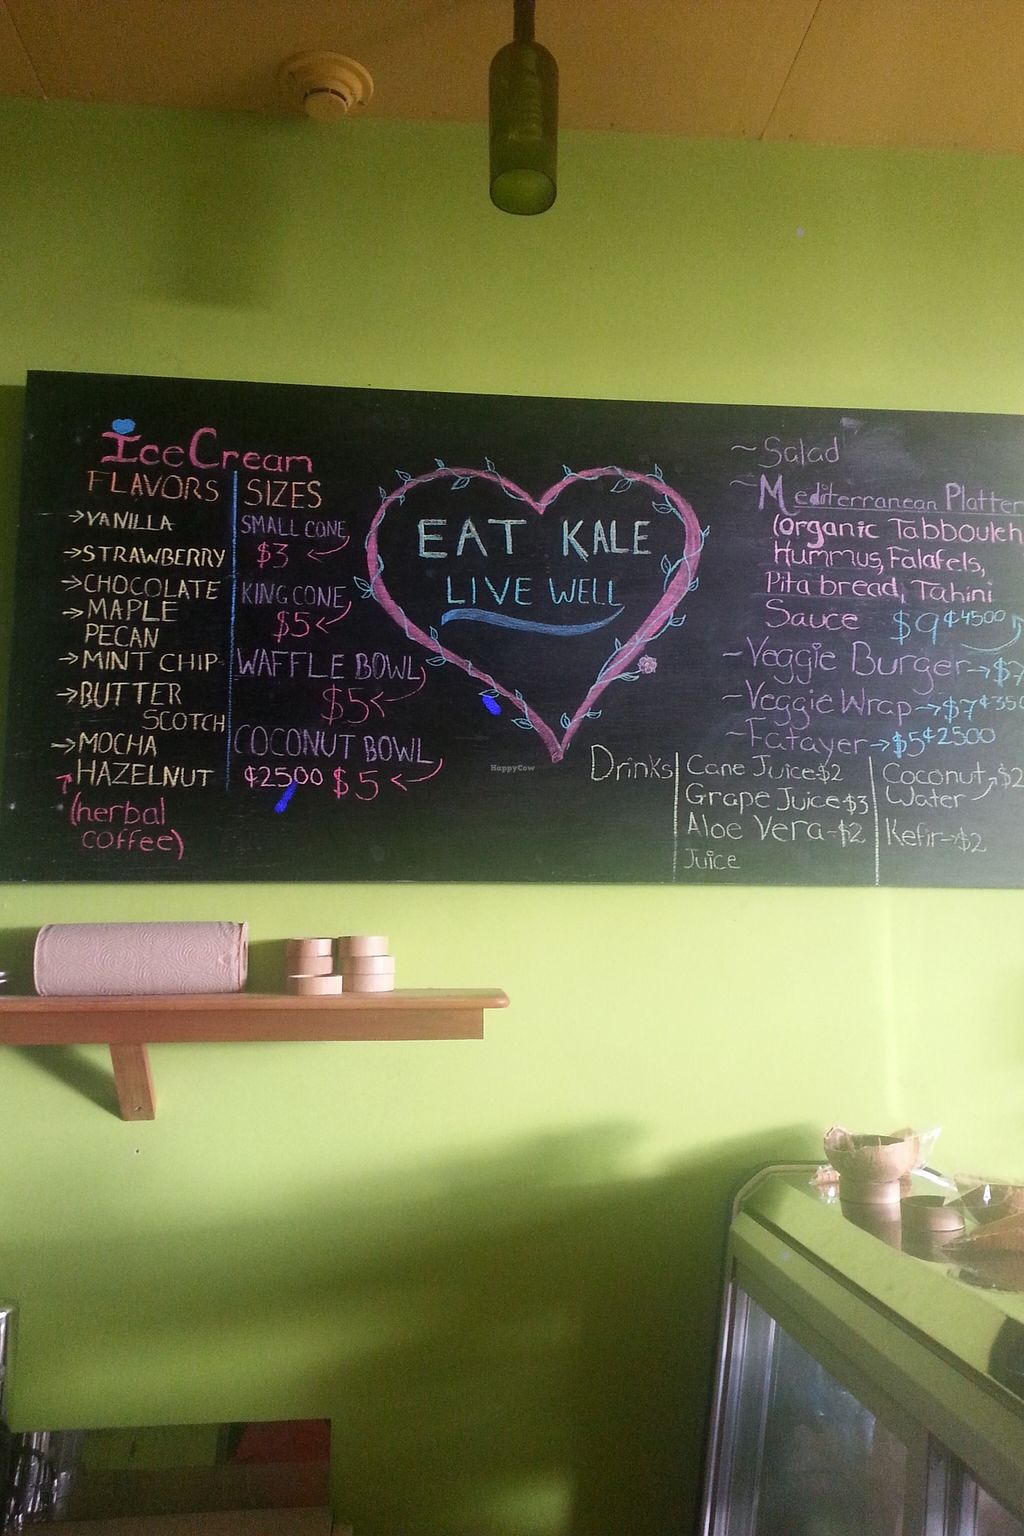 Ice Cream
FLAVORS
→VANILLA
→STRAWBERRY
→CHOCOLATE
→MAPLE
PECAN
→MINT CHIP
→BUTTER
SCOTCH
→MOCHA
HAZELNUT
(herbal
coffee)
SIZES
SMALL CONE
$3
KING CONE
$5
WAFFLE BOWL
$5
COCONUT BOWL
¢2500 $5
EAT KALE
LIVE WELL
HappyCow
~Salad
~Mediterranean Platter
(Organic Tabbouleh
Hummus, Falafels,
Pita bread, Tahini
Sauce $9 ¢4500
-Veggie Burger→$7
-Veggie Wrap→$7 ¢350
-Fatayer→$5 ¢2500
Drinks
Cane Juice-$2
Grape Juice $3
Aloe Vera-$2
Juice
Coconut $2
Water
Kefir→$2